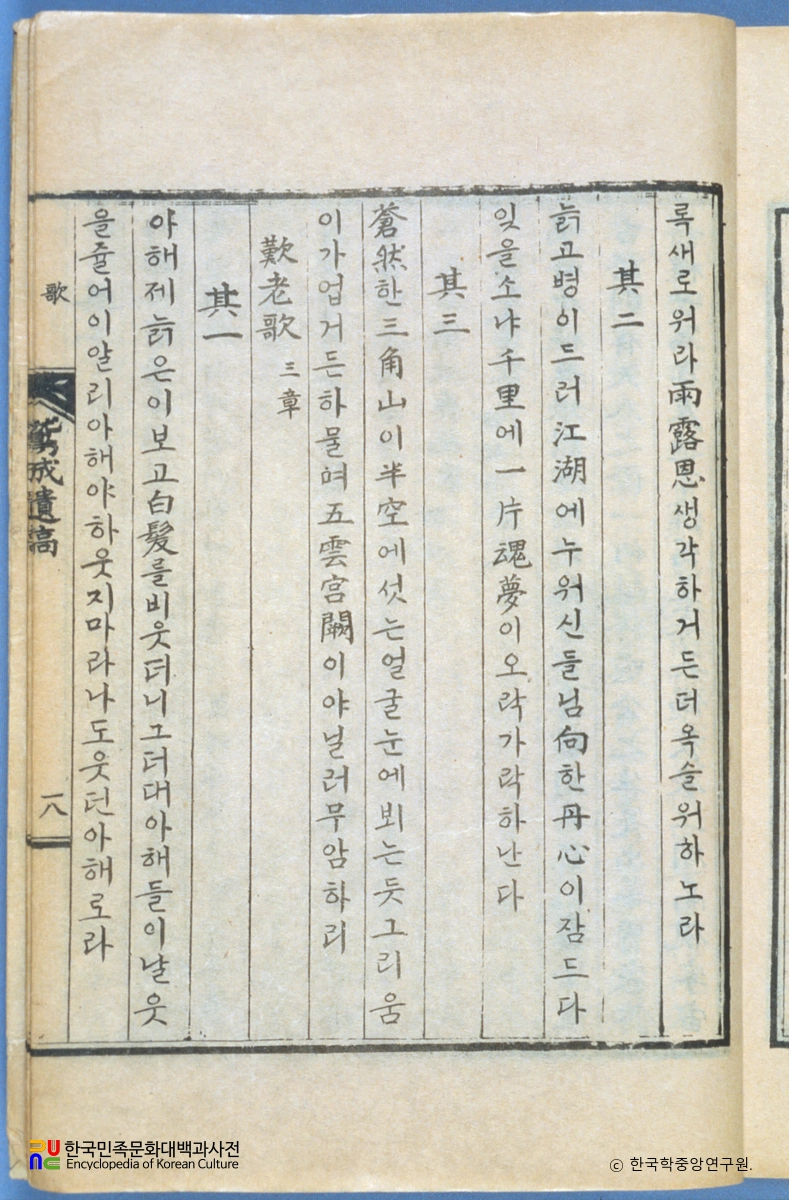 록새로워라雨露恩생각하거든더옥슬워하노라
其二
늙고병이드러江湖에누워신들님向한丹心이잠드다
잊을소냐千里에一片魂夢이오락가락하난다
其三
蒼然한三角山이半空에섯는얼굴눈에뵈는듯그리움
이가업거든하물며五雲宮闕이야닐러무암하리
歎老歌 三章
其一
아해제늙은이보고白髮를비웃더니그더대아해들이날웃
을쥴어이알리아해야하웃지마라나도웃던아해로라
歌
城遺稿
一八
한국민족문화대백과사전
Encyclopedia of Korean Culture
© 한국학중앙연구원.